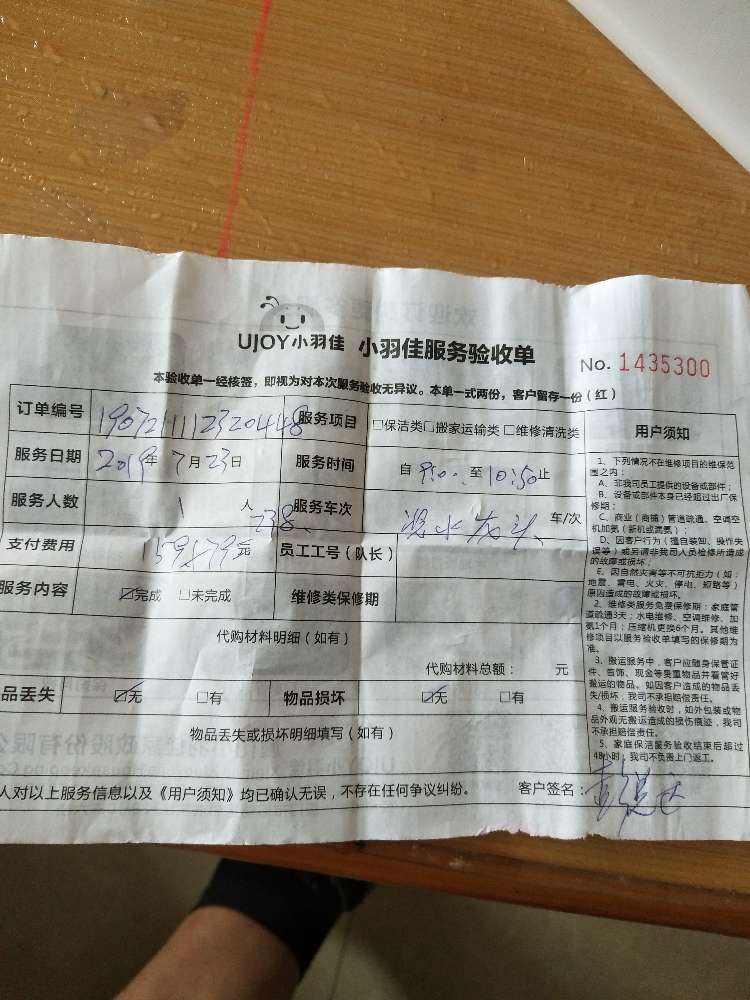 UJOY小羽佳 小羽佳服务验收单
No. 1435300
本验收单一经核签，即视为对本次服务验收无异议。本单一式两份，客户留存一份（红）
订单编号 服务项目 □保洁类□搬家运输类 □维修清洗类
服务日期 2019年 7月23日 服务时间 自 9:00 至 10:50止
服务人数 1 人 服务车次 混水龙头 车/次
支付费用 元 员工工号（队长）
服务内容 ☑完成 □未完成 维修类保修期
代购材料明细（如有）
代购材料总额： 元
品丢失 ☑无 □有 物品损坏 ☑无 □有
物品丢失或损坏明细填写（如有）
人对以上服务信息以及《用户须知》均已确认无误，不存在任何争议纠纷。 客户签名：
用户须知
1、下列情况不在维修项目的维保范
围之内：
A、非我司员工提供的设备或部件；
B、设备或部件本身已经超过出厂保
修期；
C、商业（商铺）管道疏通、空调空
机加氨（新机或漏氨）；
D、因客户行为（擅自装卸、操作失
误等）或另请非我司人员检修所造成
的故障或损坏；
E、因自然灾害等不可抗拒力（如：
地震、雷电、火灾、停电、短路等）
原因造成的故障或损坏。
2、维修类服务免费保修期：家庭管
道疏通3天；水电维修、空调维修、加
氨1个月；压缩机更换6个月。其他维
修项目以服务验收单填写的保修期为
准。
3、搬运服务中，客户应随身保管证
件、首饰、现金等贵重物品并看管好
搬运的物品。如因客户造成的物品丢
失/损坏，我司不承担赔偿责任。
4、搬运服务验收时，如外包装或物
品外观无搬运造成的损伤痕迹，我司
不承担赔偿责任。
5、家庭保洁服务验收结束后超过
48小时，我司不负责上门返工。